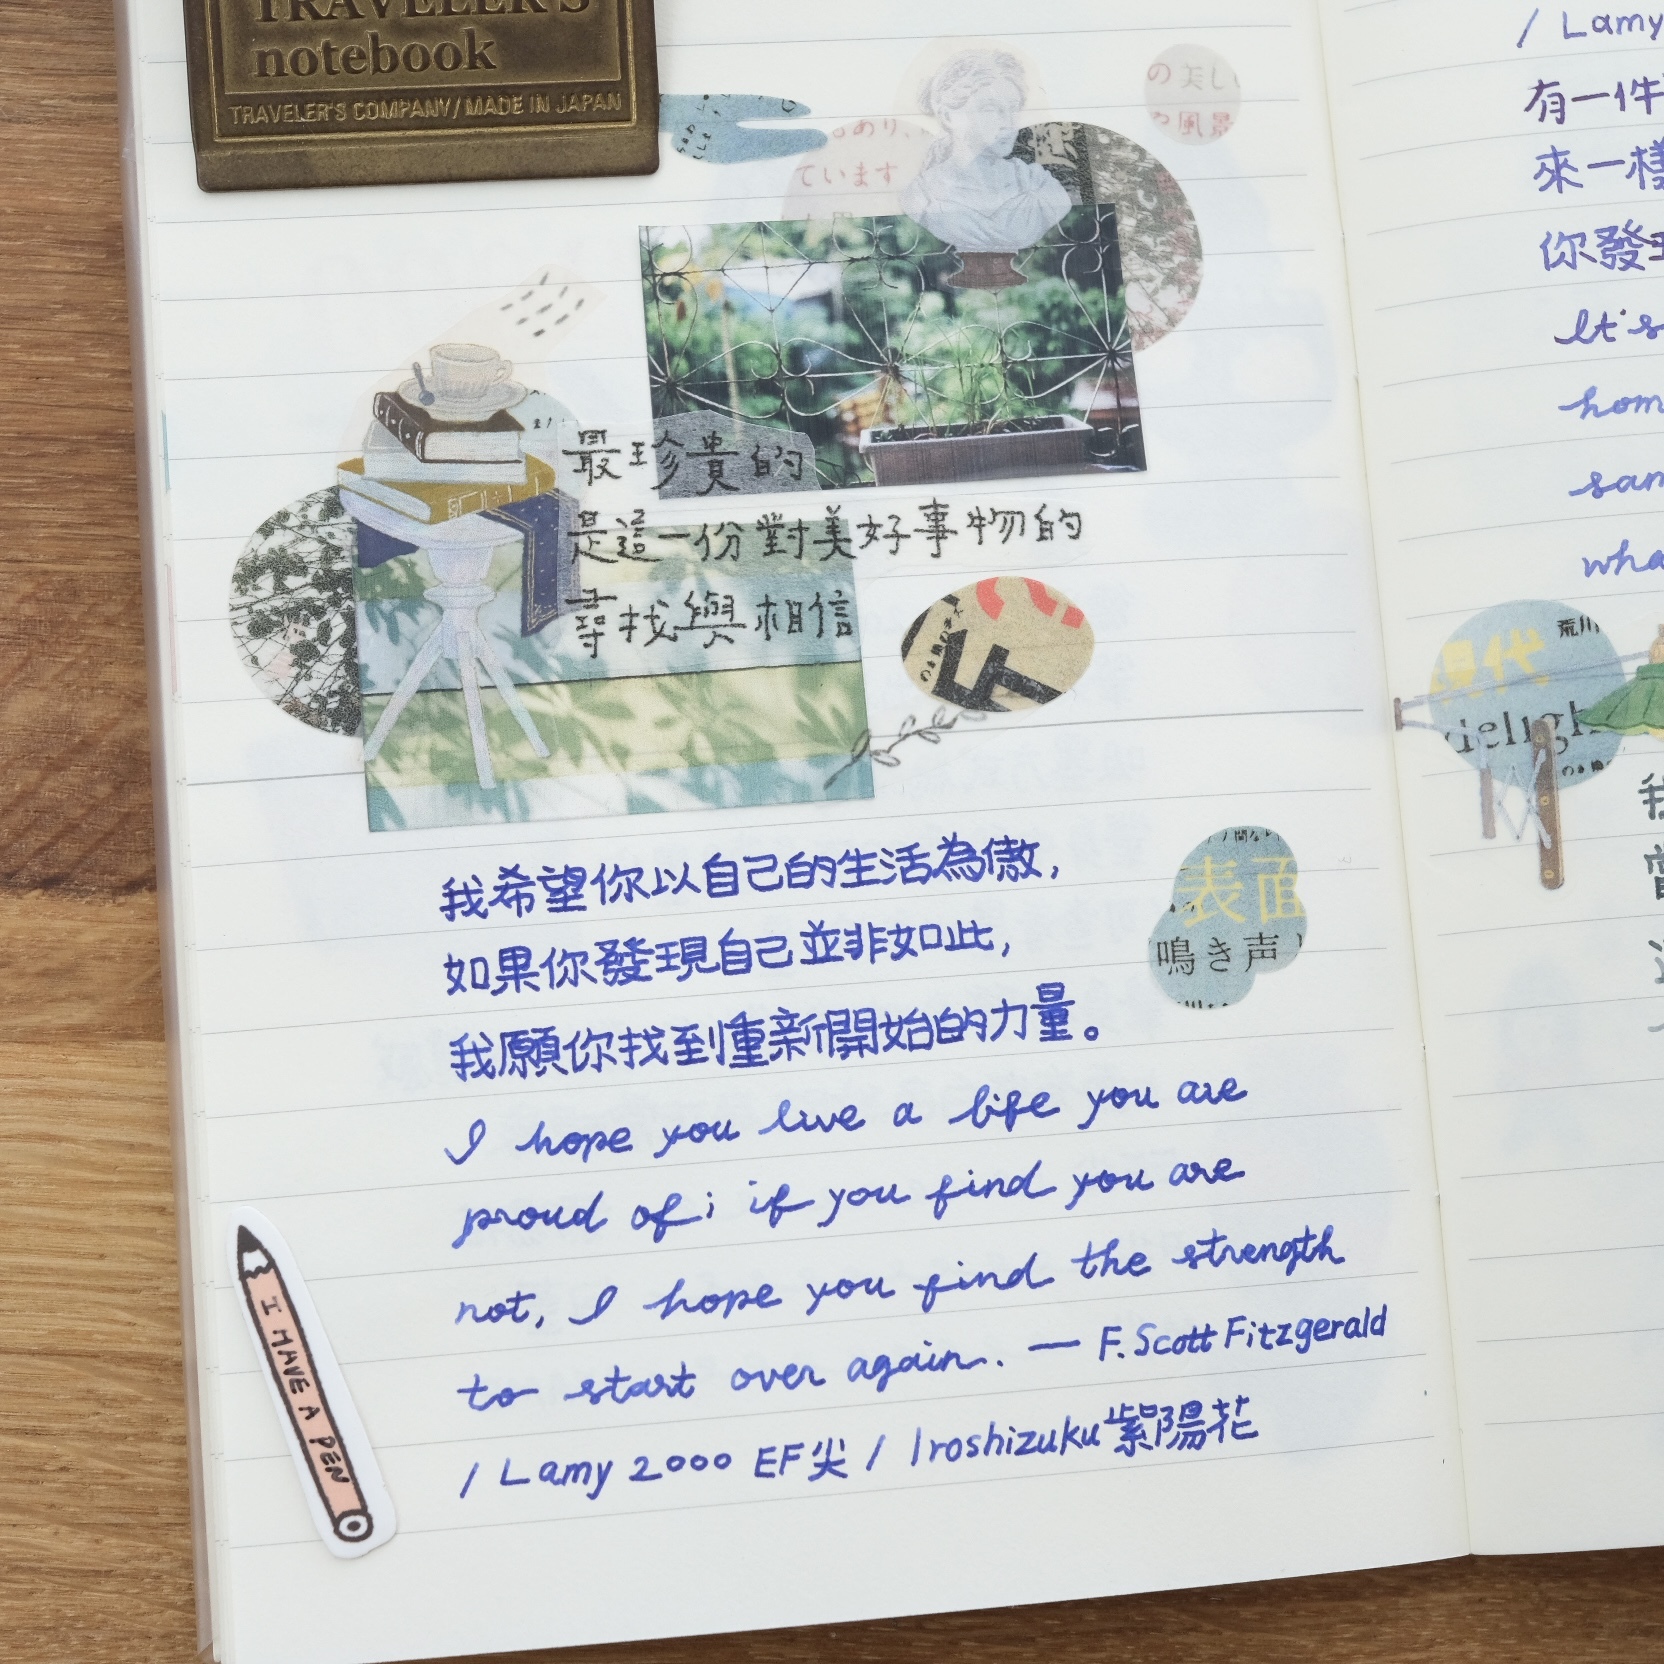 TRAVELER'S
notebook
TRAVELER'S COMPANY / MADE IN JAPAN
の美し
や風景
もあり、
ています
最珍貴的
是這一份對美好事物的
尋找與相信
表面
鳴き声
我希望你以自己的生活為傲,
如果你發現自己並非如此,
我願你找到重新開始的力量。
I hope you live a life you are
proud of; if you find you are
not, I hope you find the strength
to start over again. — F. Scott Fitzgerald
/ Lamy 2000 EF尖 / Iroshizuku紫陽花
I HAVE A PEN
/ Lamy
有一件
來一樣
你發現
It's
hom
sam
wha
現代
荒川
我
曾